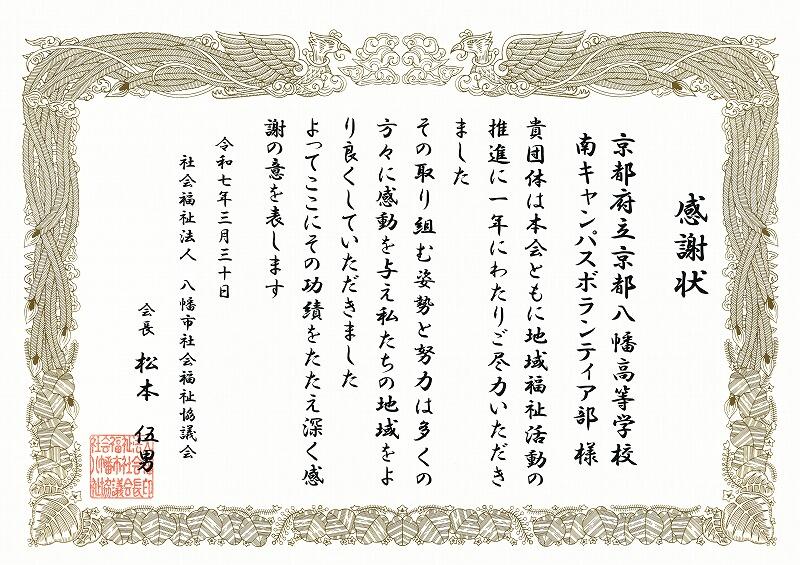 感謝状
京都府立京都八幡高等学校
南キャンパスボランティア部 様
貴団体は本会ともに地域福祉活動の
推進に一年にわたりご尽力いただき
ました
その取り組む姿勢と努力は多くの
方々に感動を与え私たちの地域をよ
り良くしていただきました
よってここにその功績をたたえ深く感
謝の意を表します
令和七年三月三十日
社会福祉法人 八幡市社会福祉協議会
会長 松本 伍男